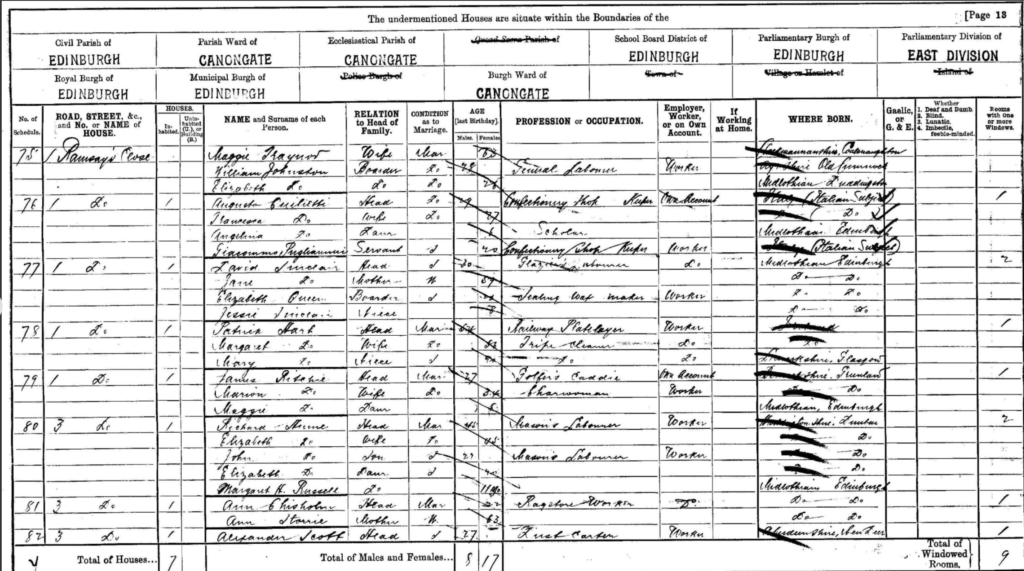 The undermentioned Houses are situate within the Boundaries of the
[Page 13
Civil Parish of EDINBURGH
Parish Ward of CANONGATE
Ecclesiastical Parish of CANONGATE
Quoad Sacra Parish of
School Board District of EDINBURGH
Parliamentary Burgh of EDINBURGH
Parliamentary Division of EAST DIVISION
Royal Burgh of EDINBURGH
Municipal Burgh of EDINBURGH
Police Burgh of
Burgh Ward of CANONGATE
Town of
Village or Hamlet of
Island of
No. of Schedule.
ROAD, STREET, &c., and No. or NAME of HOUSE.
HOUSES.
Inhabited.
Uninhabited (U.), or Building (B.)
NAME and Surname of each Person.
RELATION to Head of Family.
CONDITION as to Marriage.
AGE (last Birthday).
Males.
Females
PROFESSION or OCCUPATION.
Employer, Worker, or on Own Account.
If Working at Home.
WHERE BORN.
Gaelic, or G. & E.
Whether 1. Deaf and Dumb. 2. Blind. 3. Lunatic. 4. Imbecile, feeble-minded.
Rooms with one or more Windows.
75 1 Ramsay's Close Maggie Traynor Wife Mar 63
William Johnston Boarder Do General Labourer Worker Old Cumnock
Elizabeth Do Do Do Midlothian Duddingston
76 1 Do 1 Head Do 29 Confectionery Shop Keeper Own Account (Italian Subject) 1
Francesca Do Wife Do 27 Do
Angelina Do Daur 6 Scholar Midlothian Edinburgh
Giacommo Servant S 20 Confectionery Shop Keeper Worker (Italian Subject)
77 1 Do 1 David Sinclair Head S 30 Labourer Do Midlothian Edinburgh 2
Jane Do Mother W 59 Do Do
Elizabeth Queen Boarder S Sealing Wax maker Worker Do Do
Jessie Sinclair Niece Do Do
78 1 Do 1 Patrick Hart Head Mar Railway Platelayer Worker 1
Margaret Do Wife Do Tripe Cleaner Do
Mary Do Niece S Do Do Lanarkshire, Glasgow
79 1 Do 1 James Ritchie Head Mar 27 Golfer's Caddie Own Account 1
Marion Do Wife Do 34 Charwoman Worker Do
Maggie Do Daur 8 Midlothian, Edinburgh
80 3 Do 1 Richard Head Mar 45 Mason's Labourer Worker Dunbar 2
Elizabeth Do Wife Do 45 Do
John Do Son S 21 Mason's Labourer Worker Do
Elizabeth Do Daur S Do
Margaret H. Russell Do Midlothian Edinburgh
81 3 Do 1 Ann Chisholm Head Mar 22 Ragstore Worker Do Do Do 1
Ann Storrie Mother W 63 Do Do
82 3 Do 1 Alexander Scott Head S 27 Dust Carter Worker Aberdeenshire, New Deer 1
Total of Houses... 7
Total of Males and Females... 8 17
Total of Windowed Rooms. 9